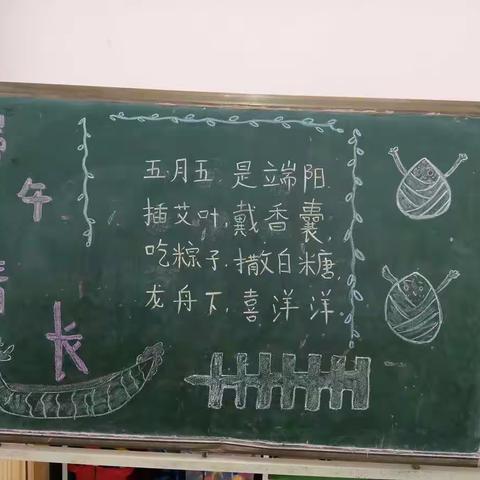 午
长
五月五 是端阳
插艾叶,戴香囊,
吃粽子,撒白糖,
龙舟下,喜洋洋。